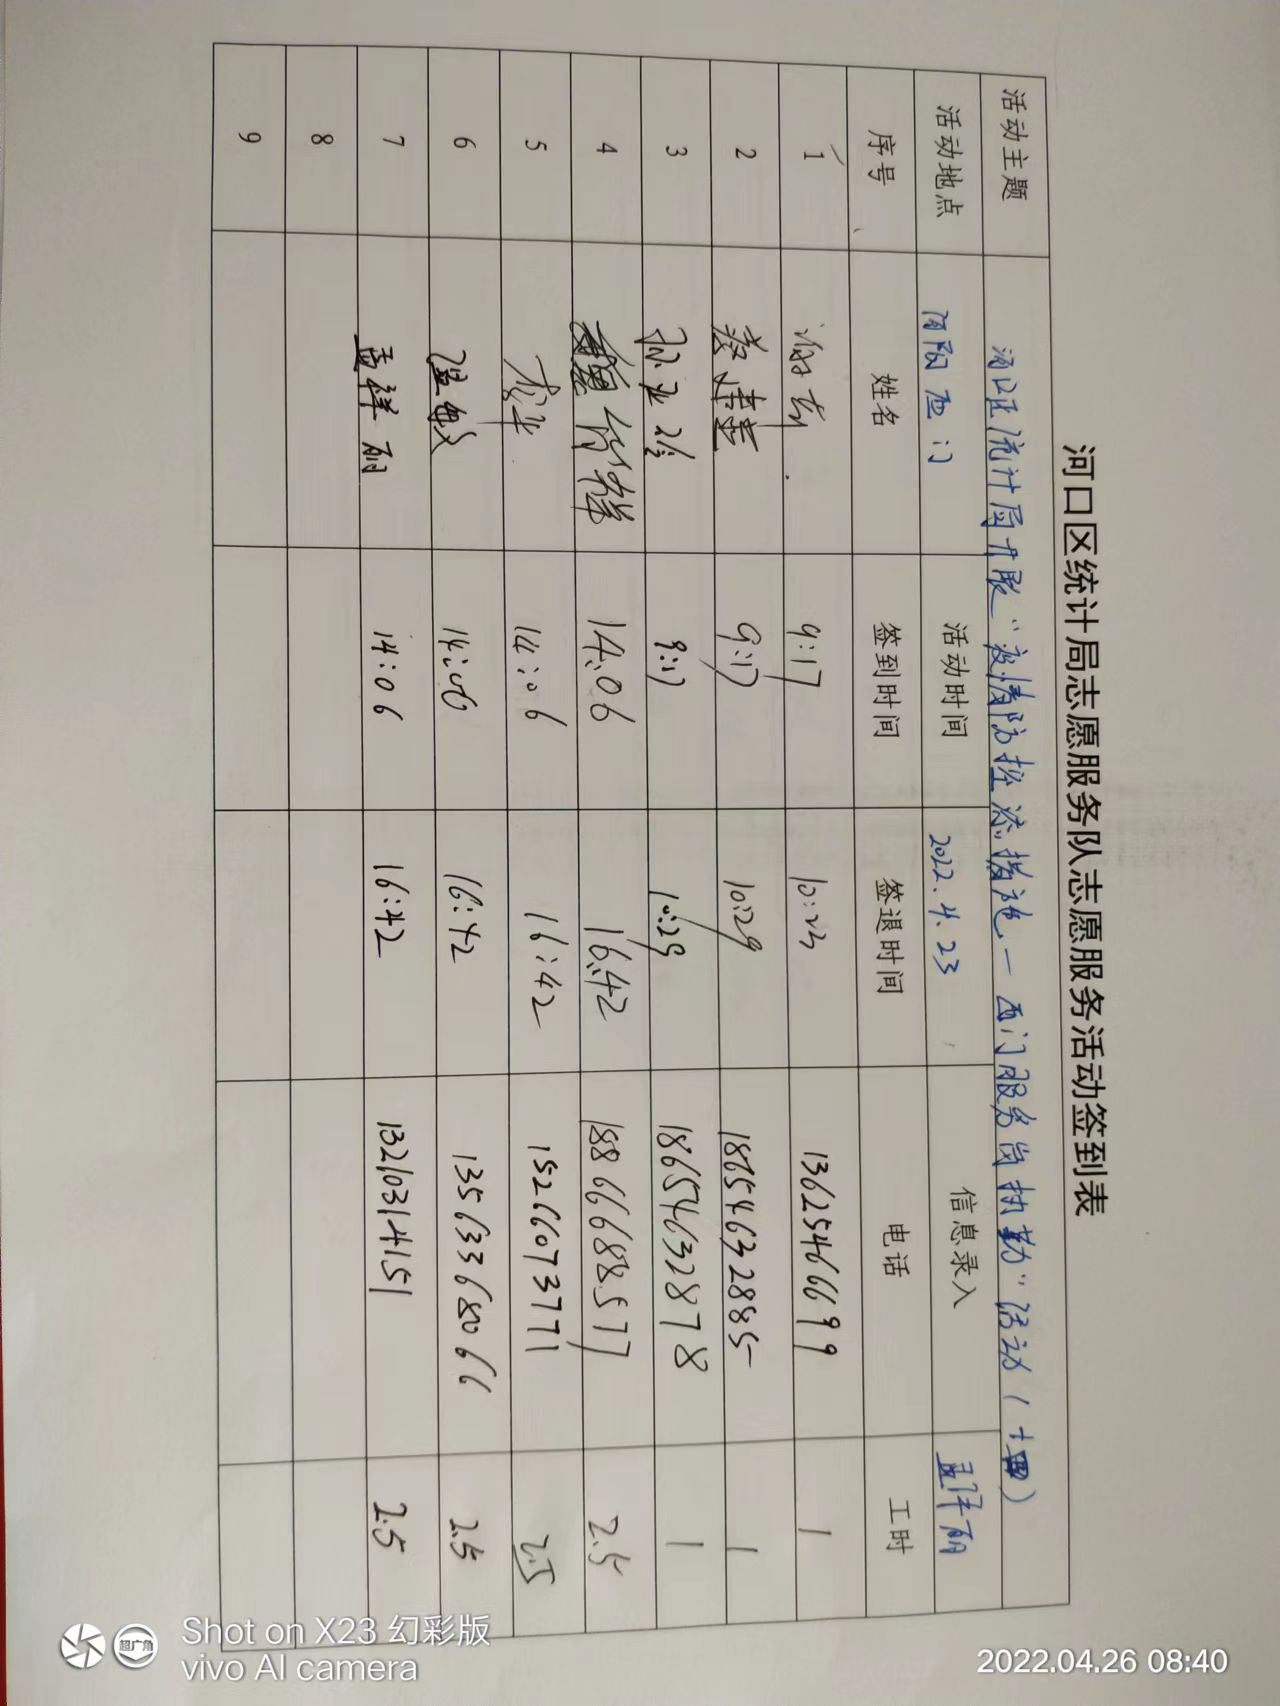 河口区统计局志愿服务队志愿服务活动签到表
活动主题 河口区统计局开展“疫情防控添措施—西门服务岗执勤”活动(十四)
活动地点 河阳西门 活动时间 2022.4.23 信息录入 孟祥丽
序号 姓名 签到时间 签退时间 电话 工时
1 9:17 10:23 13625466699 1
2 9:17 10:29 18654632885 1
3 9:17 10:29 18654632878 1
4 14:06 16:42 18866688577 2.5
5 李华 14:06 16:42 15266073771 2.5
6 14:06 16:42 13563368066 2.5
7 孟祥丽 14:06 16:42 13210314151 2.5
8
9
超广角
Shot on X23 幻彩版
vivo AI camera
2022.04.26 08:40